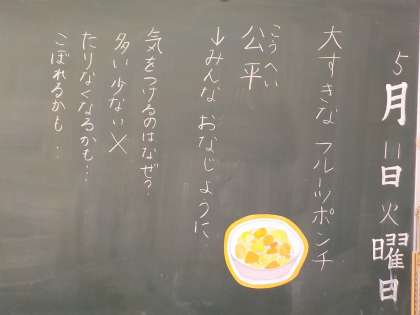 5月11日火曜日
大すきなフルーツポンチ
こうへい
公平
↓みんなおなじように
気をつけるのはなぜ?
多い少ない✕
たりなくなるかも…
こぼれるかも‥